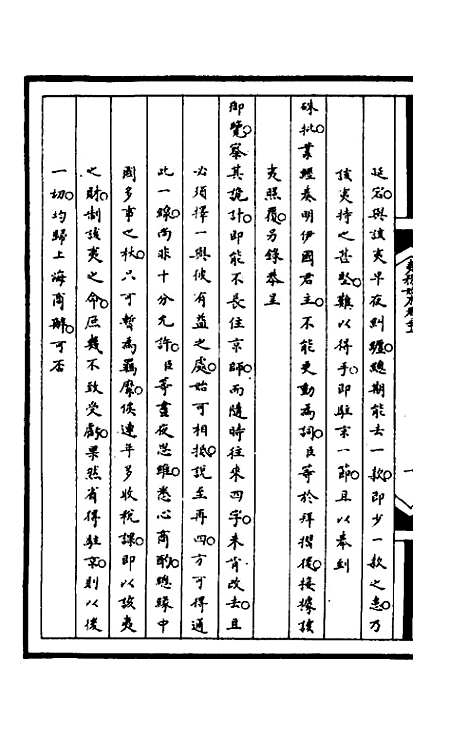 廷寄與該夷早夜糾纏總期能去一款即少一款之患乃
該夷持之甚堅難以得手即駐京一節且以奉到
硃批業經奏明伊國君主不能更動為詞臣等於拜摺後接據該
夷照覆另錄恭呈
御覽察其詭計即能不長住京師而隨時往來四字未肯改去且
必須擇一與彼有益之處始可相抵說至再四方可得通
此一線尚非十分允許臣等晝夜思維悉心商酌總緣中
國多事之秋只可暫為羈縻俟連年多收稅課即以該夷
之財制該夷之命庶幾不致受虧果然省得駐京則以後
一切均歸上海商辦可否